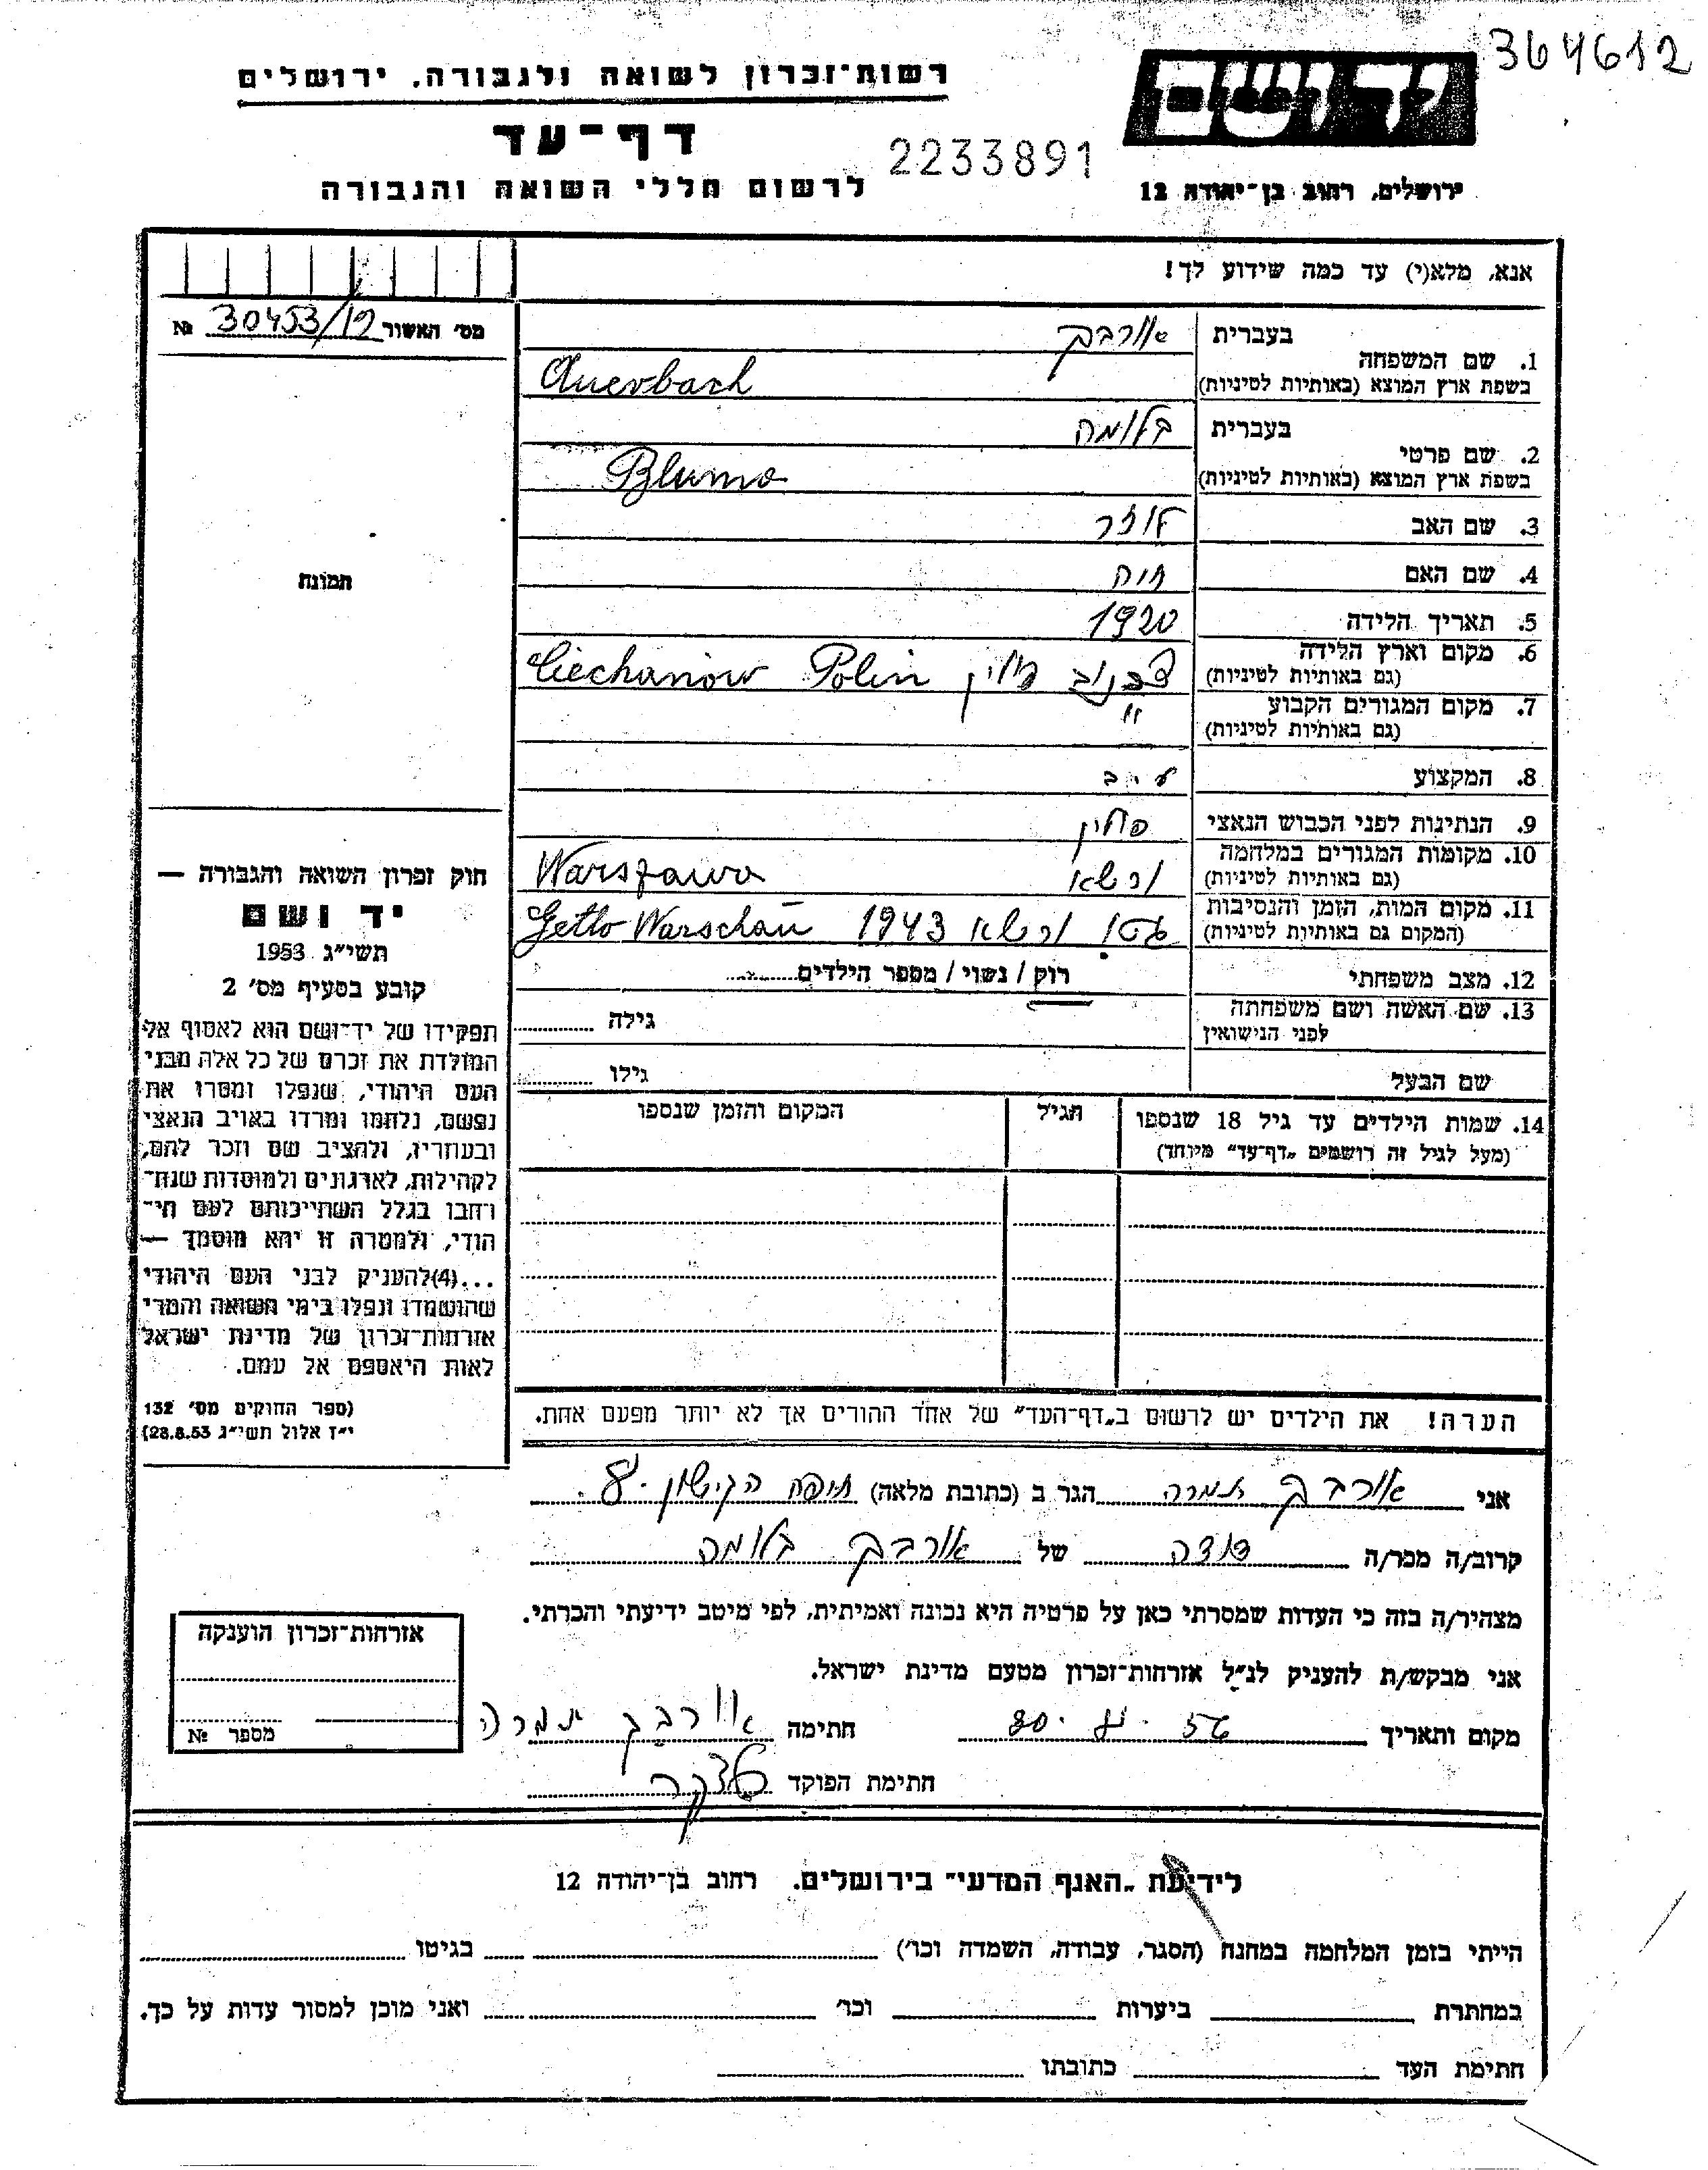 364612
רשות־זכרון לשואה ולגבורה, ירושלים
יד ושם
דף־עד
2233891
לרשום חללי השואה והגבורה
ירושלים, רחוב בן־יהודה 12
אנא, מלא(י) עד כמה שידוע לך!
מס׳ האשור 30453/12 №
תמונה
1. שם המשפחה
בעברית אורבך
בשפת ארץ המוצא (באותיות לטיניות) Auerbach
2. שם פרטי
בעברית בלומה
בשפת ארץ המוצא (באותיות לטיניות) Bluma
3. שם האב
4. שם האם חיה
5. תאריך הלידה 1920
6. מקום וארץ הלידה
(גם באותיות לטיניות) פולין Ciechanów Polin
7. מקום המגורים הקבוע "
(גם באותיות לטיניות)
8. המקצוע
9. הנתינות לפני הכבוש הנאצי פולין
10. מקומות המגורים במלחמה
(גם באותיות לטיניות) ורשא Warszawa
11. מקום המות, הזמן והנסיבות
(המקום גם באותיות לטיניות) גטו ורשא 1943 Getto Warschau
12. מצב משפחתי רוק / נשוי / מספר הילדים
13. שם האשה ושם משפחתה
לפני הנישואין
גילה
שם הבעל
גילו
14. שמות הילדים עד גיל 18 שנספו
(מעל לגיל זה רושמים „דף־עד" מיוחד)
הגיל
המקום והזמן שנספו
חוק זכרון השואה והגבורה —
יד ושם
תשי״ג 1953
קובע בסעיף מס׳ 2
תפקידו של יד־ושם הוא לאסוף אל
המולדת את זכרם של כל אלה מבני
העם היהודי, שנפלו ומסרו את
נפשם, נלחמו ומרדו באויב הנאצי
ובעוזריו, ולהציב שם וזכר להם,
לקהילות, לארגונים ולמוסדות שנח־
רבו בגלל השתייכותם לעם הי־
הודי, ולמטרה זו יהא מוסמך —
...(4)להעניק לבני העם היהודי
שהושמדו ונפלו בימי השואה והמרי
אזרחות־זכרון של מדינת ישראל
לאות היאספם אל עמם.
(ספר החוקים מס׳ 132
י״ז אלול תשי״ג 28.8.53)
הערה! את הילדים יש לרשום ב„דף־העד" של אחד ההורים אך לא יותר מפעם אחת.
אני אורבך תמרה הגר ב (כתובת מלאה) חיפה הקישון 8.
קרוב/ה מכר/ה דודה של אורבך בלומה
מצהיר/ה בזה כי העדות שמסרתי כאן על פרטיה היא נכונה ואמיתית, לפי מיטב ידיעתי והכרתי.
אני מבקש/ת להעניק לנ״ל אזרחות־זכרון מטעם מדינת ישראל.
מקום ותאריך חתימה אורבך תמרה
חתימת הפוקד
אזרחות־זכרון הוענקה
מספר №
לידיעת „האגף המדעי" בירושלים, רחוב בן־יהודה 12
הייתי בזמן המלחמה במחנה (הסגר, עבודה, השמדה וכו׳) בגיטו
במחתרת ביערות וכו׳ ואני מוכן למסור עדות על כך.
חתימת העד כתובתו